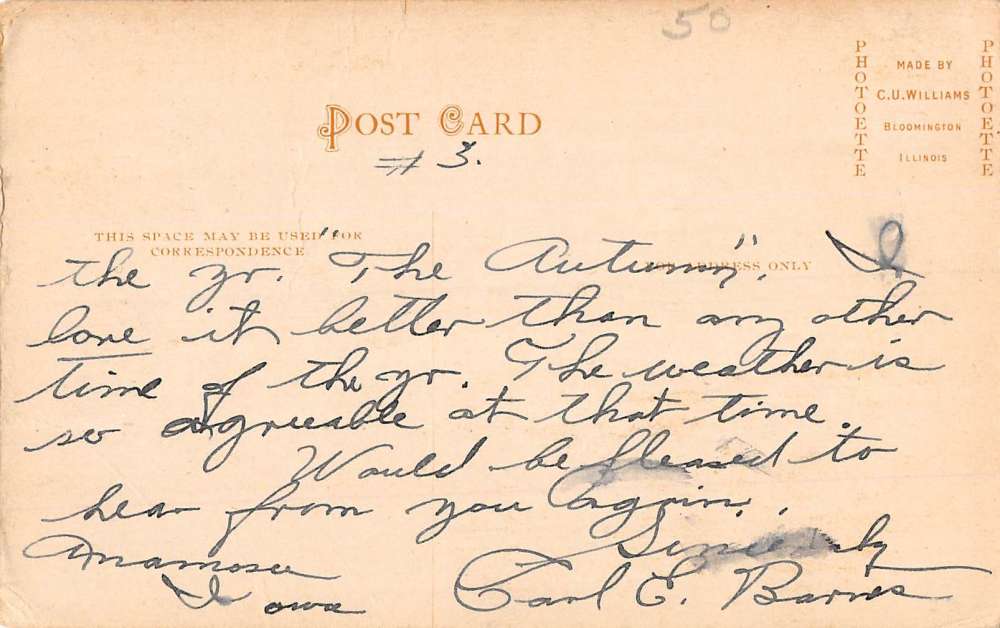 50
POST CARD
# 3.
PHOTOETTE
MADE BY
C.U. WILLIAMS
BLOOMINGTON
ILLINOIS
PHOTOETTE
THIS SPACE MAY BE USED FOR
CORRESPONDENCE
FOR ADDRESS ONLY
the yr. "The Autumn". I
love it better than any other
time of the yr. The weather is
so agreeable at that time.
Would be pleased to
hear from you again.
Sincerely
Anamosa
Iowa
Carl E. Barnes